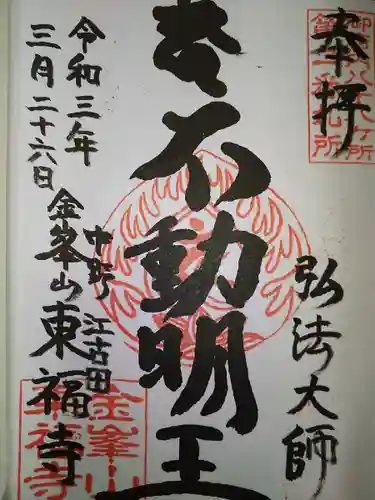 奉拝
弘法大師
不動明王
中野 江古田
金峯山 東福寺
令和三年
三月二十六日
第一番札所
金峯山
東福寺